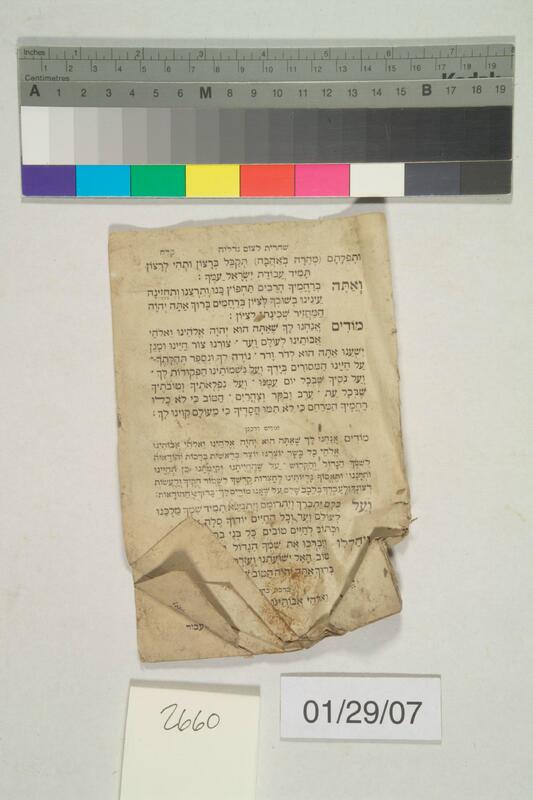 Inches 1 2 3 4 5 6 7
Centimetres 1 2 3 4 5 6 7 8 9 10 11 12 13 14 15 16 17 18 19
Kodak
A 1 2 3 4 5 6 M 8 9 10 11 12 13 14 15 B 17 18 19
שחרית לצום גדליה קלח
ותפלתם (מהרה באהבה) תקבל ברצון ותהי לרצון
תמיד עבודת ישראל עמך:
ואתה ברחמיך הרבים תחפוץ בנו ותרצנו ותחזינה
עינינו בשובך לציון ברחמים ברוך אתה יהוה
המחזיר שכינתו לציון:
מודים אנחנו לך שאתה הוא יהוה אלהינו ואלהי
אבותינו לעולם ועד צורנו צור חיינו ומגן
ישענו אתה הוא לדור ודור נודה לך ונספר תהלתך
על חיינו המסורים בידך ועל נשמותינו הפקודות לך
ועל נסיך שבכל יום עמנו ועל נפלאותיך וטובותיך
שבכל עת ערב ובקר וצהרים הטוב כי לא כלו
רחמיך המרחם כי לא תמו חסדיך כי מעולם קוינו לך:
מודים דרבנן
מודים אנחנו לך שאתה הוא יהוה אלהינו ואלהי אבותינו
אלהי כל בשר יוצרנו יוצר בראשית ברכות והודאות
לשמך הגדול והקדוש על שהחייתנו וקיימתנו כן תחיינו
ותחננו ותאסוף גליותינו לחצרות קדשך לשמור חקיך ולעשות
רצונך ולעבדך בלבב שלם על שאנו מודים לך ברוך אל ההודאות:
ועל כלם יתברך ויתרומם ויתנשא תמיד שמך מלכנו
לעולם ועד וכל החיים יודוך סלה
וכתוב לחיים טובים כל בני
ויהללו ויברכו את שמך הגדול
טוב האל ישועתנו ועזרתנו
ברוך אתה יהוה הטוב
ואלהי אבותינו
עבור
2660
01/29/07